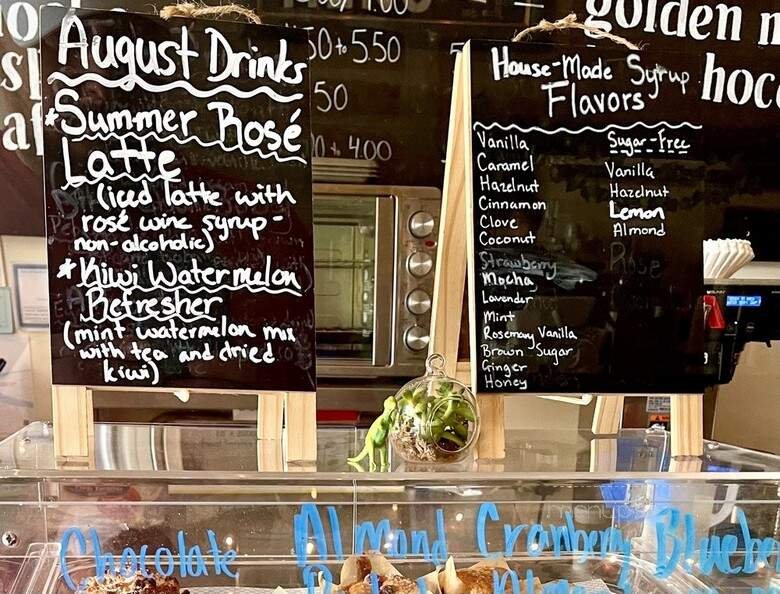 August Drinks
*Summer Rosé
Latte
(iced latte with
rosé wine syrup-
non-alcoholic)
*Kiwi Watermelon
Refresher
(mint watermelon mix
with tea and dried
kiwi)
50 to 5.50
50
4.00
golden
hoc
House-Made Syrup
Flavors
Vanilla
Caramel
Hazelnut
Cinnamon
Clove
Coconut
Strawberry
Mocha
Lavender
Mint
Rosemary Vanilla
Brown Sugar
Ginger
Honey
Sugar-Free
Vanilla
Hazelnut
Lemon
Almond
Rose
Chocolate
Almond
Cranberry
Bluebe